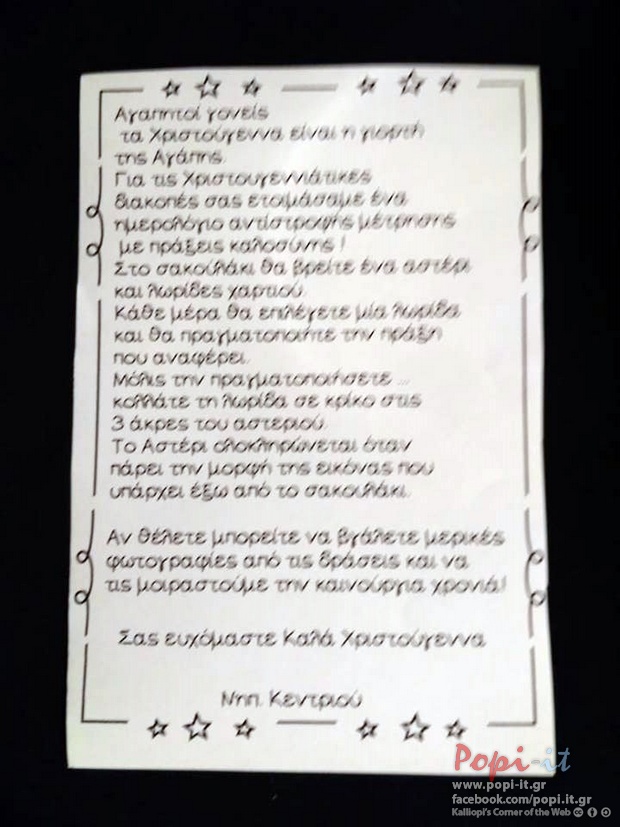 Αγαπητοί γονείς
τα Χριστούγεννα είναι η γιορτή
της Αγάπης.
Για τις Χριστουγεννιάτικες
διακοπές σας ετοιμάσαμε ένα
ημερολόγιο αντίστροφής μέτρησης
με πράξεις καλοσύνης !
Στο σακουλάκι θα βρείτε ένα αστέρι
και λωρίδες χαρτιού.
Κάθε μέρα θα επιλέγετε μία λωρίδα
και θα πραγματοποιήτε την πράξη
που αναφέρει.
Μόλις την πραγματοποιήσετε ...
κολλάτε τη λωρίδα σε κρίκο στις
3 άκρες του αστεριού.
Το Αστέρι ολοκληρώνεται όταν
πάρει την μορφή της εικόνας που
υπάρχει έξω από το σακουλάκι.
Αν θέλετε μπορείτε να βγάλετε μερικές
φωτογραφίες από τις δράσεις και να
τις μοιραστούμε την καινούργια χρονιά!
Σας ευχόμαστε Καλά Χριστούγεννα
Νηπ. Κεντριού
Popi-it
www.popi-it.gr
facebook.com/popi.it.gr
Kalliopi's Corner of the Web